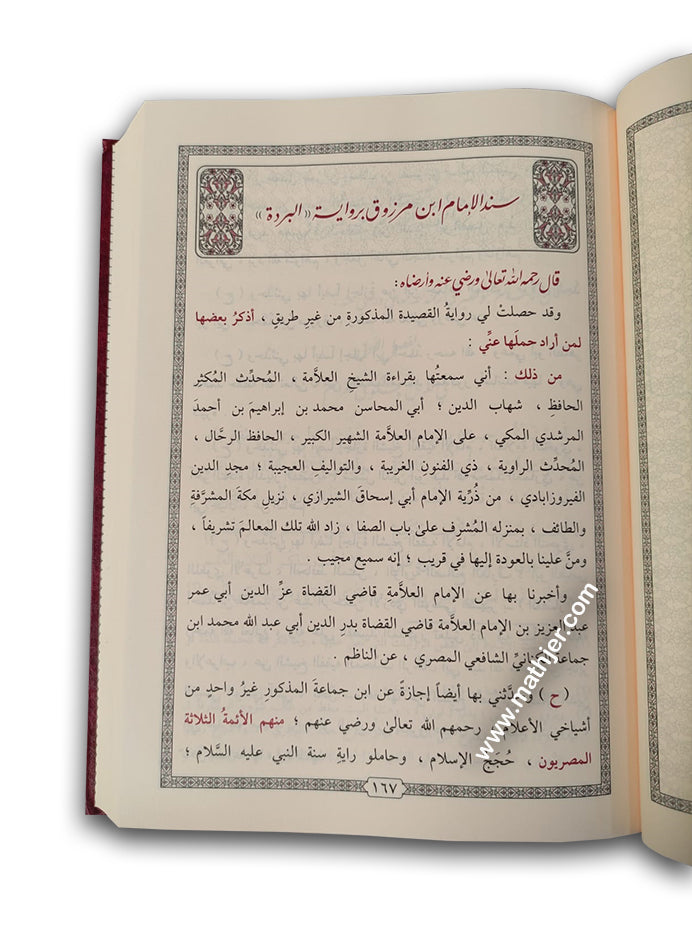 سند الإمام ابن مرزوق برواية «البردة»
قال رحمه الله تعالى ورضي عنه وأرضاه :
وقد حصلتْ لي روايةُ القصيدة المذكورةِ من غيرِ طريقٍ ، أذكرُ بعضها
لمن أراد حملَها عنِّي :
من ذلك : أني سمعتُها بقراءة الشيخِ العلاَّمة ، المُحدِّث المُكثِر
الحافظِ ، شهاب الدين ؛ أبي المحاسن محمد بن إبراهيمَ بن أحمدَ
المرشدي المكي ، على الإمام العلاَّمة الشهير الكبير ، الحافظ الرحَّال ،
المُحدِّث الراوية ، ذي الفنونِ الغريبة ، والتواليفِ العجيبة ؛ مجدِ الدين
الفيروزابادي ، من ذُرِّية الإمام أبي إسحاقَ الشيرازي ، نزيلِ مكةَ المشرَّفةِ
والطائف ، بمنزله المُشرِف علىٰ باب الصفا ، زاد الله تلك المعالمَ تشريفاً ،
ومنَّ علينا بالعودة إليها في قريب ؛ إنه سميع مجيب .
وأخبرنا بها عن الإمام العلاَّمةِ قاضي القضاة عزِّ الدين أبي عمر
بن الإمام العلاَّمة قاضي القضاة بدرِ الدين أبي عبد الله محمد ابن
جماعة الشافعي المصري ، عن الناظم .
( ح ) بها أيضاً إجازةً عن ابن جماعةَ المذكورِ غيرُ واحدٍ من
أشياخي الأعلام رحمهم الله تعالىٰ ورضي عنهم ؛ منهم الأئمةُ الثلاثة
المصريون ، حُجَجُ الإسلام ، وحاملو رايةِ سنة النبي عليه السَّلام ؛
١٦٧
www.mathjer.com